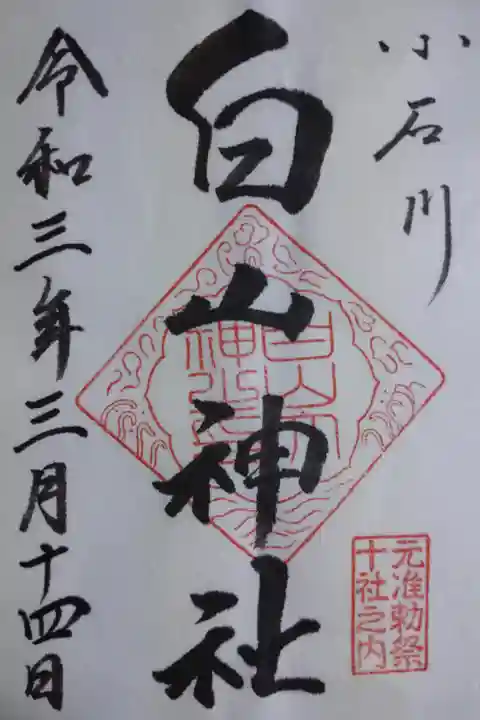 小石川
白山神社
元准勅祭
十社之内
令和三年三月十四日